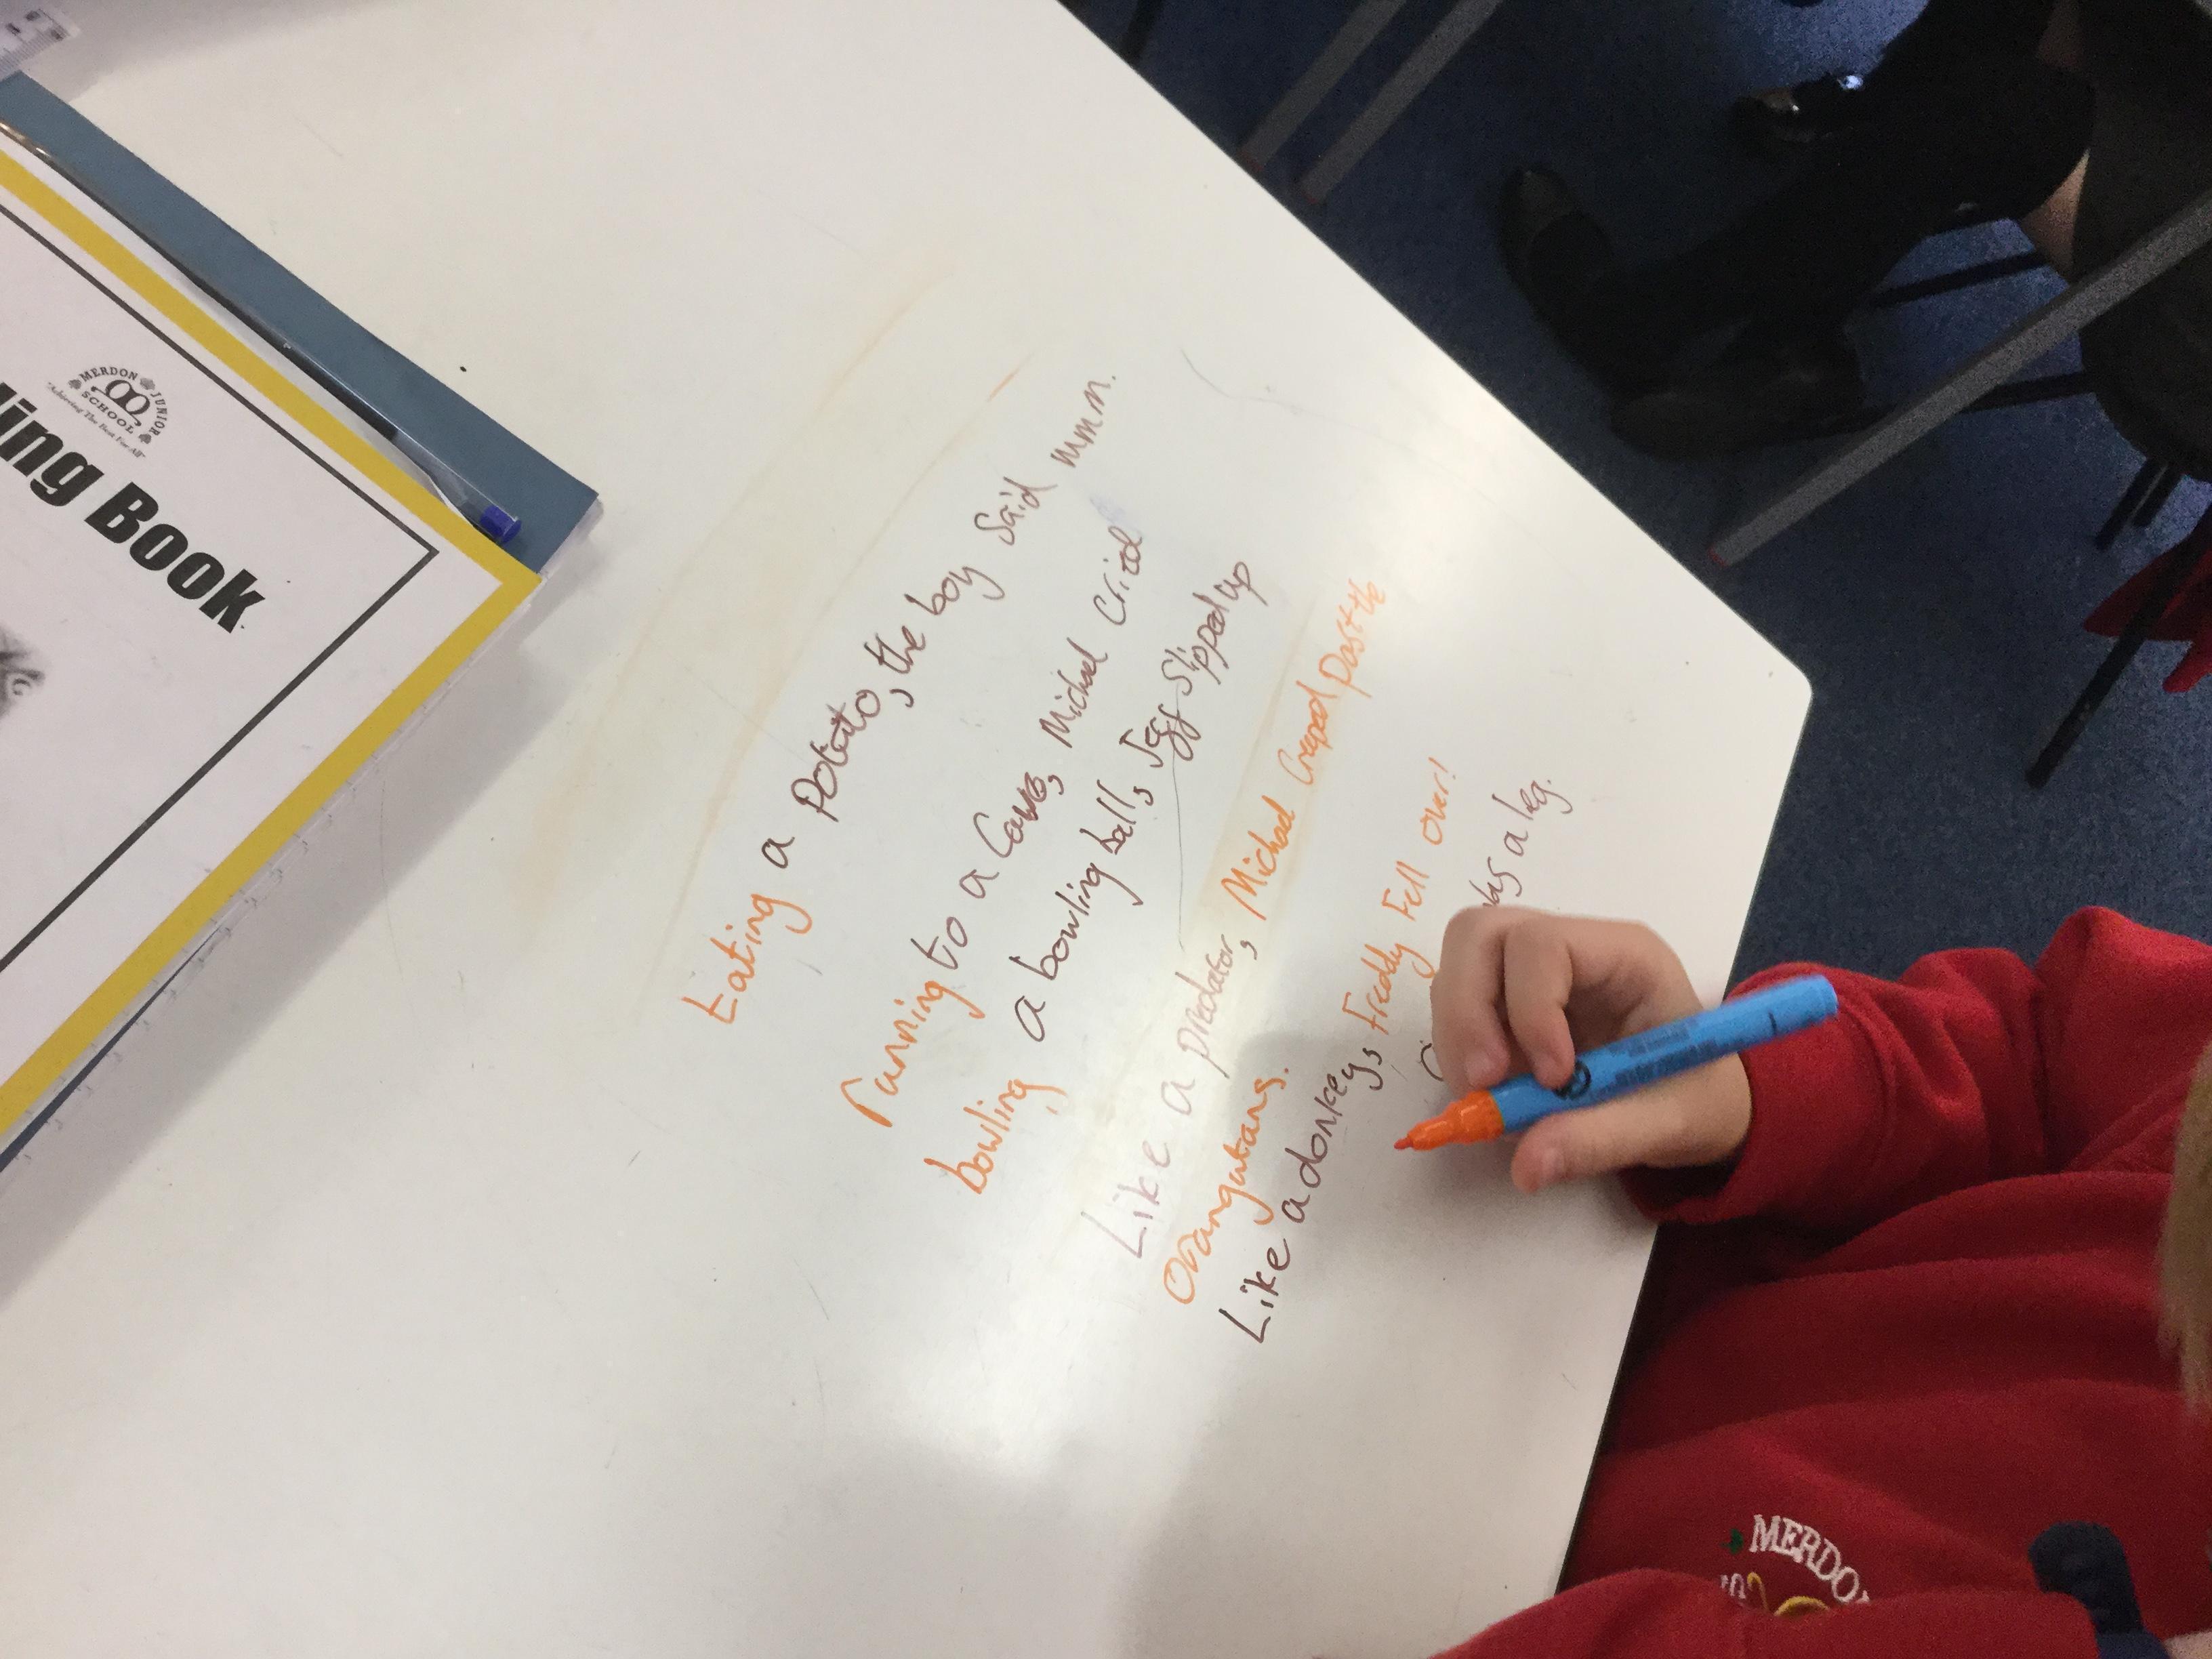 MERDON JUNIOR SCHOOL
"Achieving The Best For All"
ing Book
Eating a potato, the boy said mmm.
running to a cave, Michael cried
bowling a bowling ball, Jeff slipped up
Like a predator, Michael creeped past the
orangutans.
Like a donkey, Freddy fell over!
a leg.
MERDO